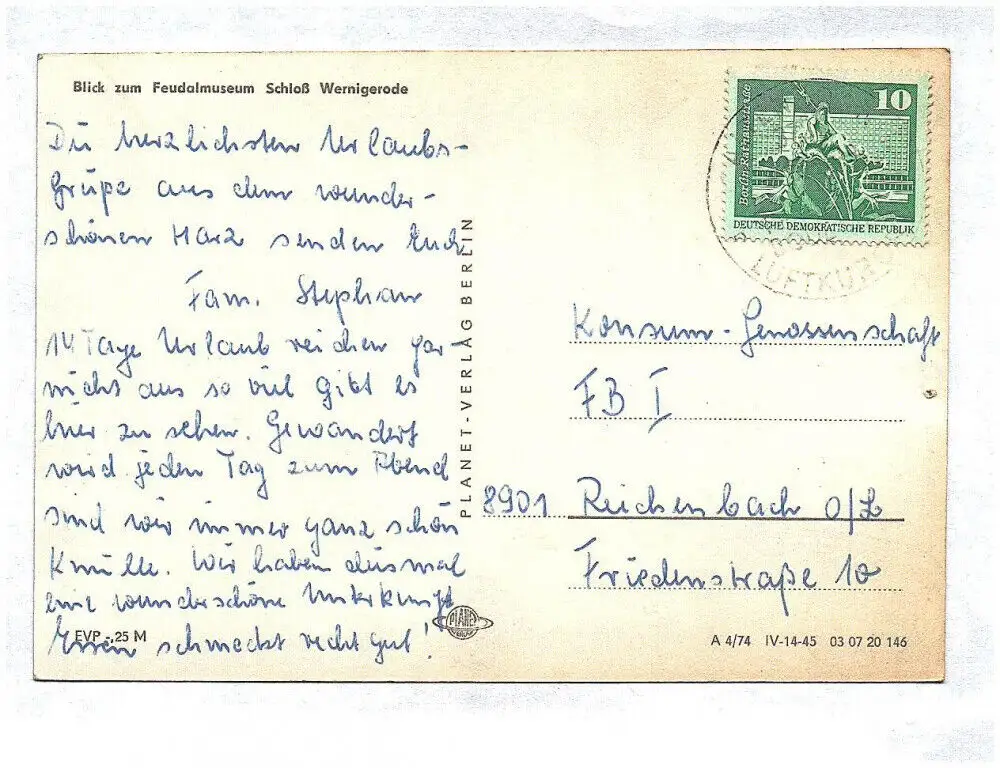 Blick zum Feudalmuseum Schloß Wernigerode
Die herzlichsten Urlaubs-
grüße aus dem wunder-
schönen Harz senden Euch
Fam. Stephan
14 Tage Urlaub reichen gar-
nicht aus so viel gibt es
hier zu sehen. Gewandert
wird jeden Tag zum Abend
sind wir immer ganz schön
Knülle. Wir haben diesmal
eine wunderschöne Unterkunft
Essen schmeckt recht gut!
EVP -,25 M
PLANET-VERLAG BERLIN
PLANET
10
Berlin-Rathausstraße
DEUTSCHE DEMOKRATISCHE REPUBLIK
LUFTKURO
Konsum-Genossenschaft
FB I
8901 Reichenbach O/L
Friedenstraße 10
A 4/74 IV-14-45 03 07 20 146